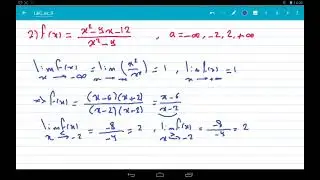 2) f(x) = (x²-4x-12)/(x²-4) , a = -∞, -2, 2, +∞
lim f(x) x→-∞ = lim x→-∞ (x²/x²) = 1 , lim f(x) x→+∞ = 1
=> f(x) = (x-6)(x+2)/(x-2)(x+2) = (x-6)/(x-2)
lim f(x) x→-2 = -8/-4 = 2 , lim f(x) x→-2 = -8/-4 = 2